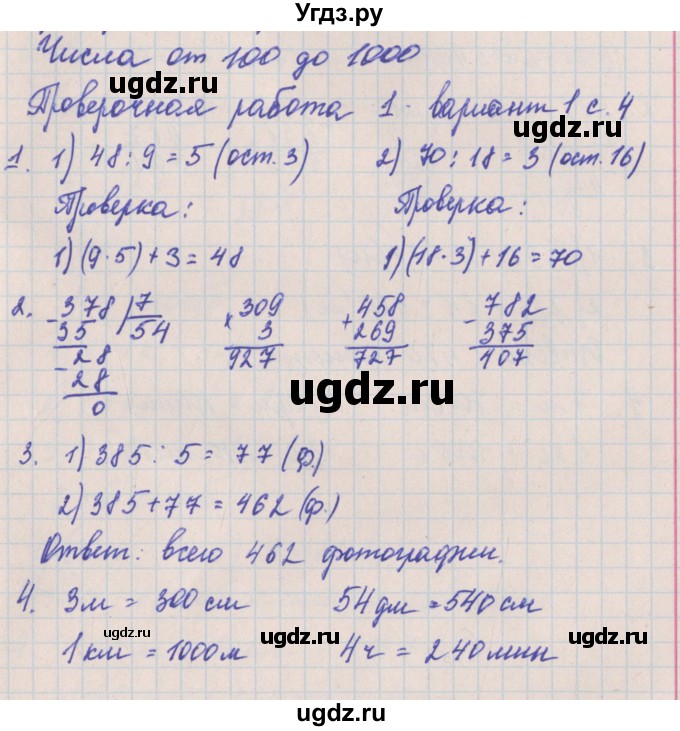 Угдз.ру
Числа от 100 до 1000
Проверочная работа 1 вариант 1 с. 4
1. 1) 48 : 9 = 5 (ост. 3) 2) 70 : 18 = 3 (ост. 16)
Проверка: Проверка:
1) (9 · 5) + 3 = 48 1) (18 · 3) + 16 = 70
2. 378 | 7 × 309 + 458 - 782
- 35 54 3 269 375
28 927 727 407
- 28
0
3. 1) 385 : 5 = 77 (ф.)
2) 385 + 77 = 462 (ф.)
Ответ: всего 462 фотографии.
4. 3 м = 300 см 54 дм = 540 см
1 км = 1000 м 4 ч = 240 мин
ugdz.ru
ugdz.ru
ugdz.ru
ugdz.ru
ugdz.ru
ugdz.ru
ugdz.ru
ugdz.ru
ugdz.ru
ugdz.ru
ugdz.ru